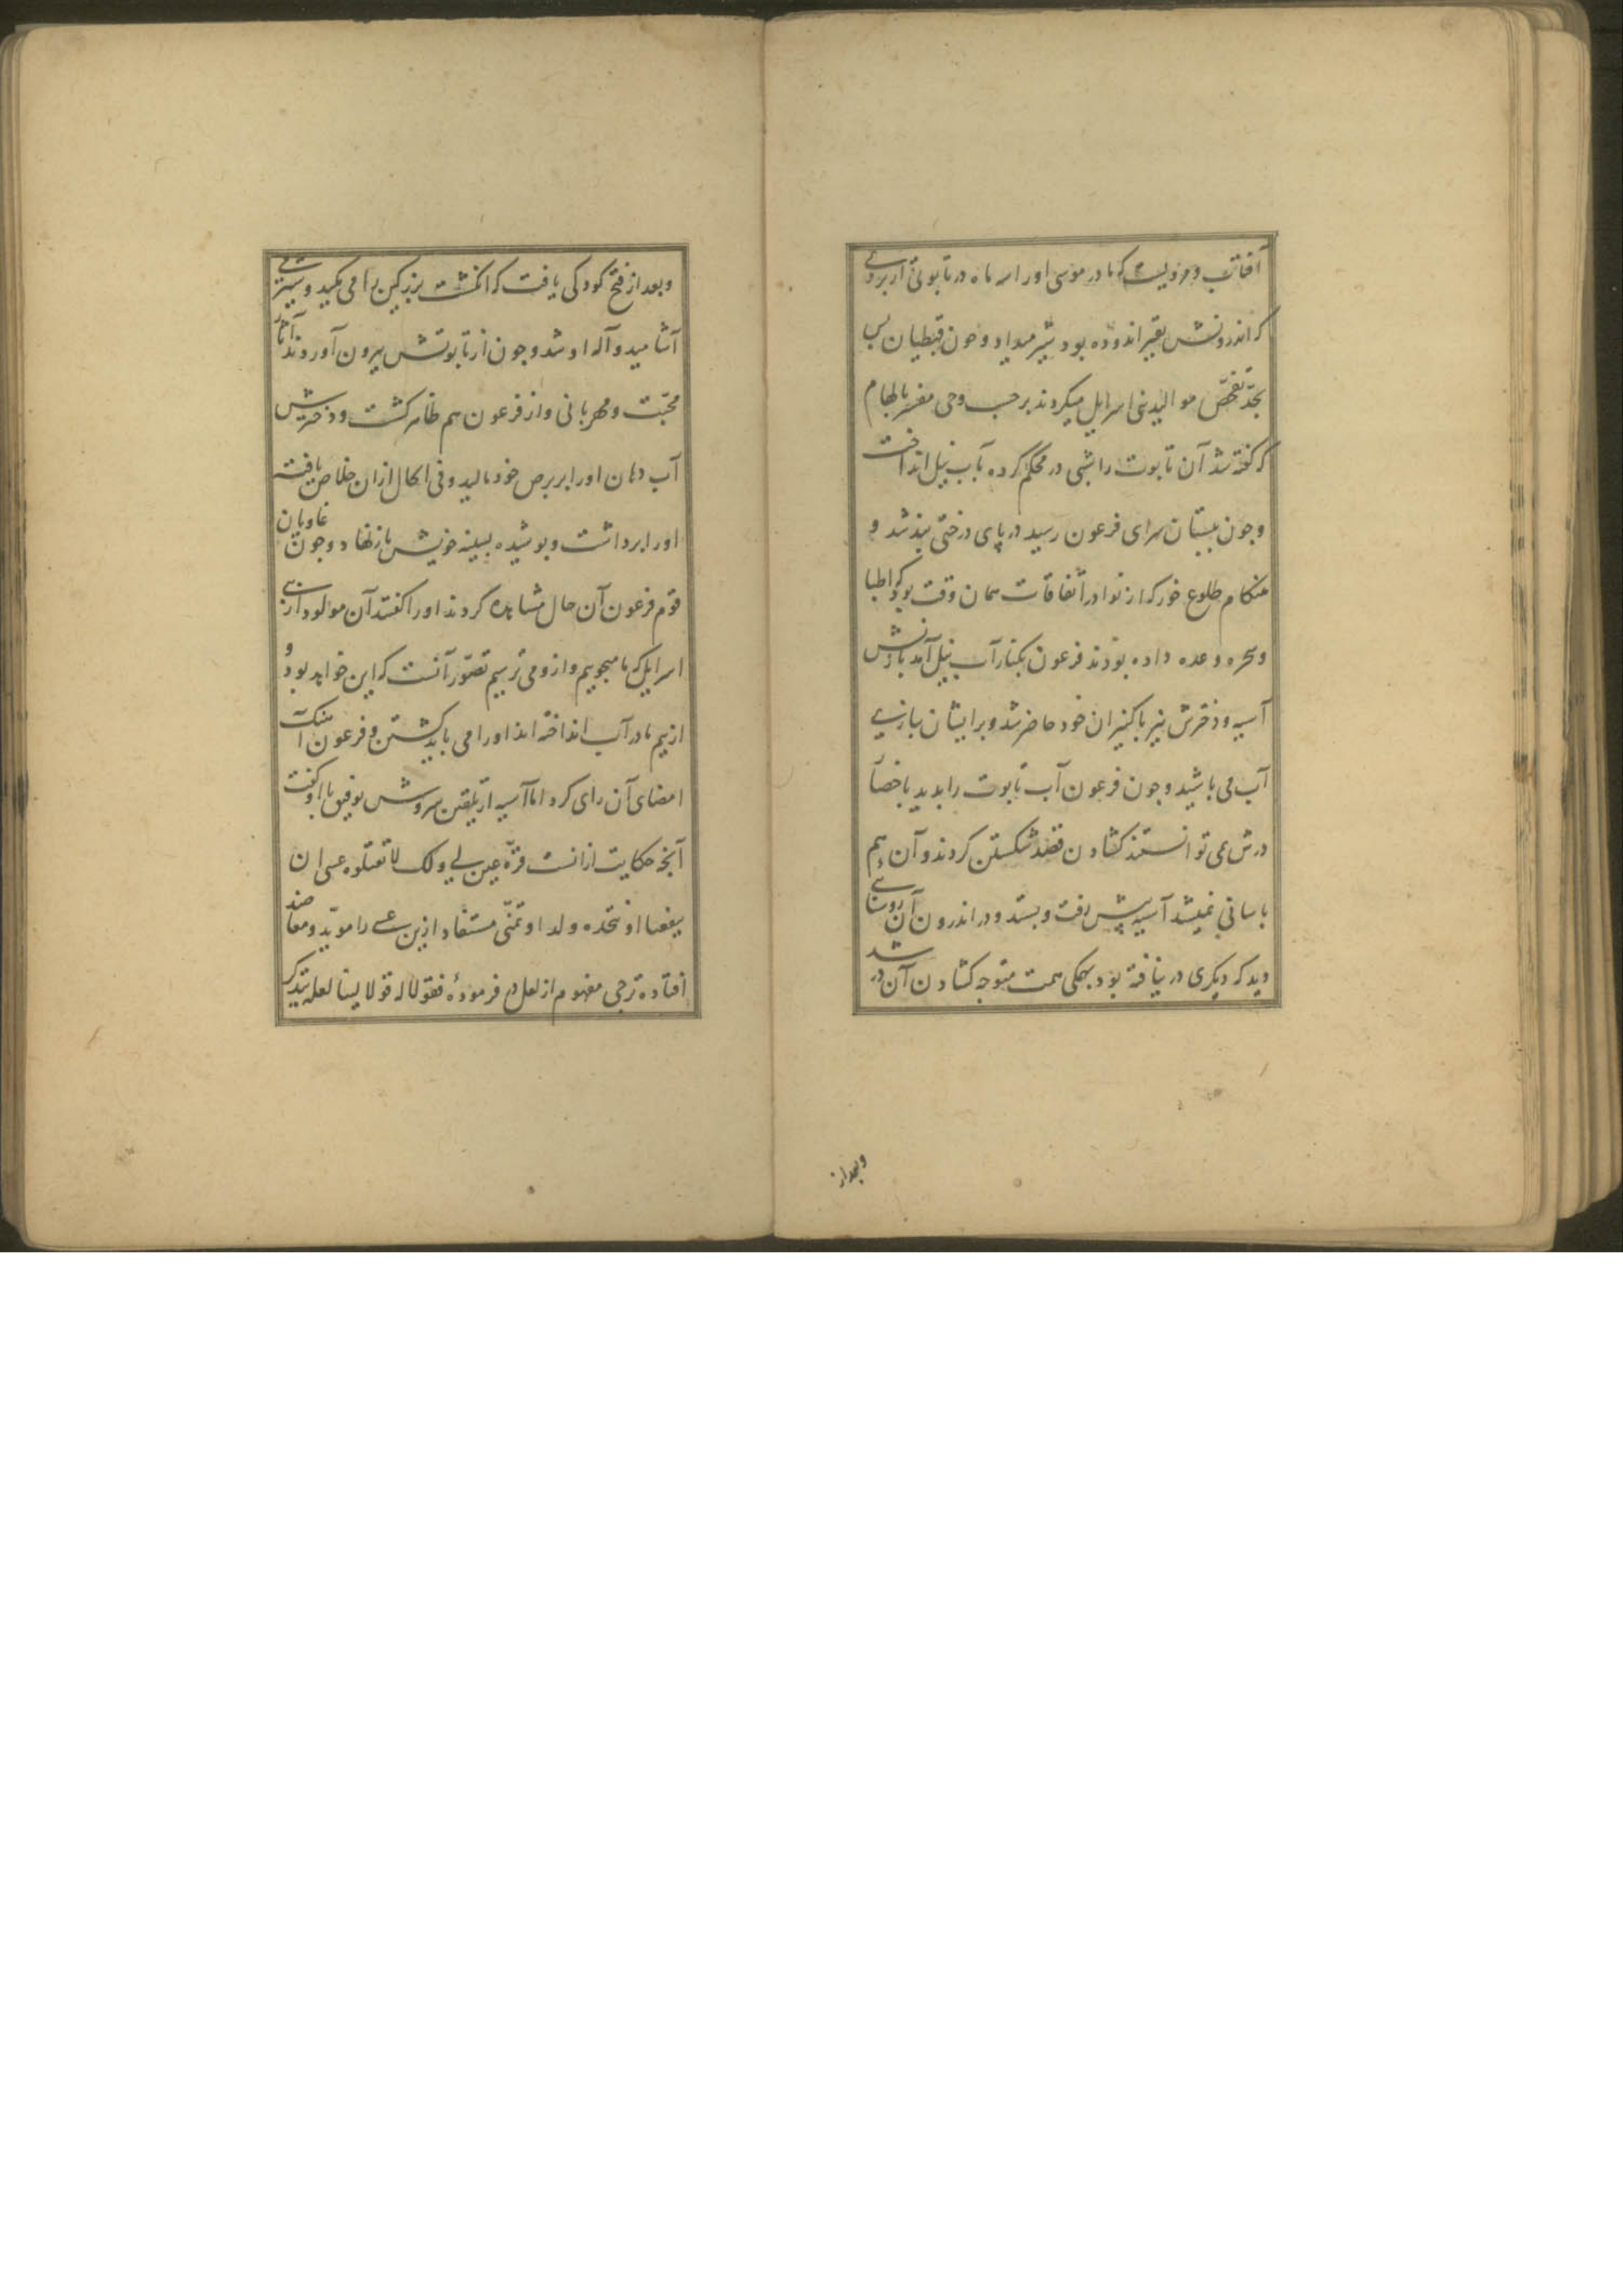 آفتاب و مرویست که مادر موسی اورا سه ماه در تابوتی از بردی
که اندرونش بقیر اندوده بود شیر میداد و جون قبطیان بس
بجد تفحّص موالید بنی اسرایل میکردند بر حسب وحی مفسر بالهام
که کفته شد آن تابوت را شبی در محکم کرده بآب نیل انداخت
وجون ببستان سرای فرعون رسید در پای درختی بند شد و
هنکام طلوع خور که از نوادر اتفاقات همان وقت بود که اطبا
وسحره وعده داده بودند فرعون بکنار آب نیل آمد بازنش
آسیه ودخترش نیز باکنیزان خود حاضر شد وبرایشان ببازی
آب می باشید وجون فرعون آب تابوت را بدید باحضا
درش نمی توانستند کشادن قصد شکستن کردند وآن هم
باسانی نمیشد آسیه پیش رفت وبستد ودر اندرون آن روشنایی
دید که دیکری در نیافته بود بهمکی همت متوجه کشادن آن در شد
وبعد از
وبعد از فتح کودکی یافت که انکشت بزرکین را می مکید وشیر می
آشامید وآله او شد وجون از تابوتش بیرون آوردند آثار
محبّت ومهربانی واز فرعون هم ظاهر کشت ودخترش
آب دهان اورا بر برص خود مالید وفی الحال ازان خلاص یافته
اورا برداشت وبوسیده بسینه خویش باز نهاد وجون غاویان
قوم فرعون آن حال مشاهده کردند اورا کفتند آن مولود از بنی
اسرایل که ما میجوییم وازو می ترسیم تصوّر آنست که این خواهد بود و
از بیم مادر آب انداخته اند اورا می باید کشتن و فرعون آهنک
امضای آن رای کرد اما آسیه از تلقین سروش توفیق با او کفت
آنچه حکایت ازانست قرّة عین لی ولک لا تقتلوه عسی ان
ینفعنا او نتخذه ولدا و تمنّی مستفاد ازین عسی را مویّد ومعاضد
افتاده ترجی مفهوم از لعل در فرمودهٔ فقولا له قولا لینا لعله یتذکر